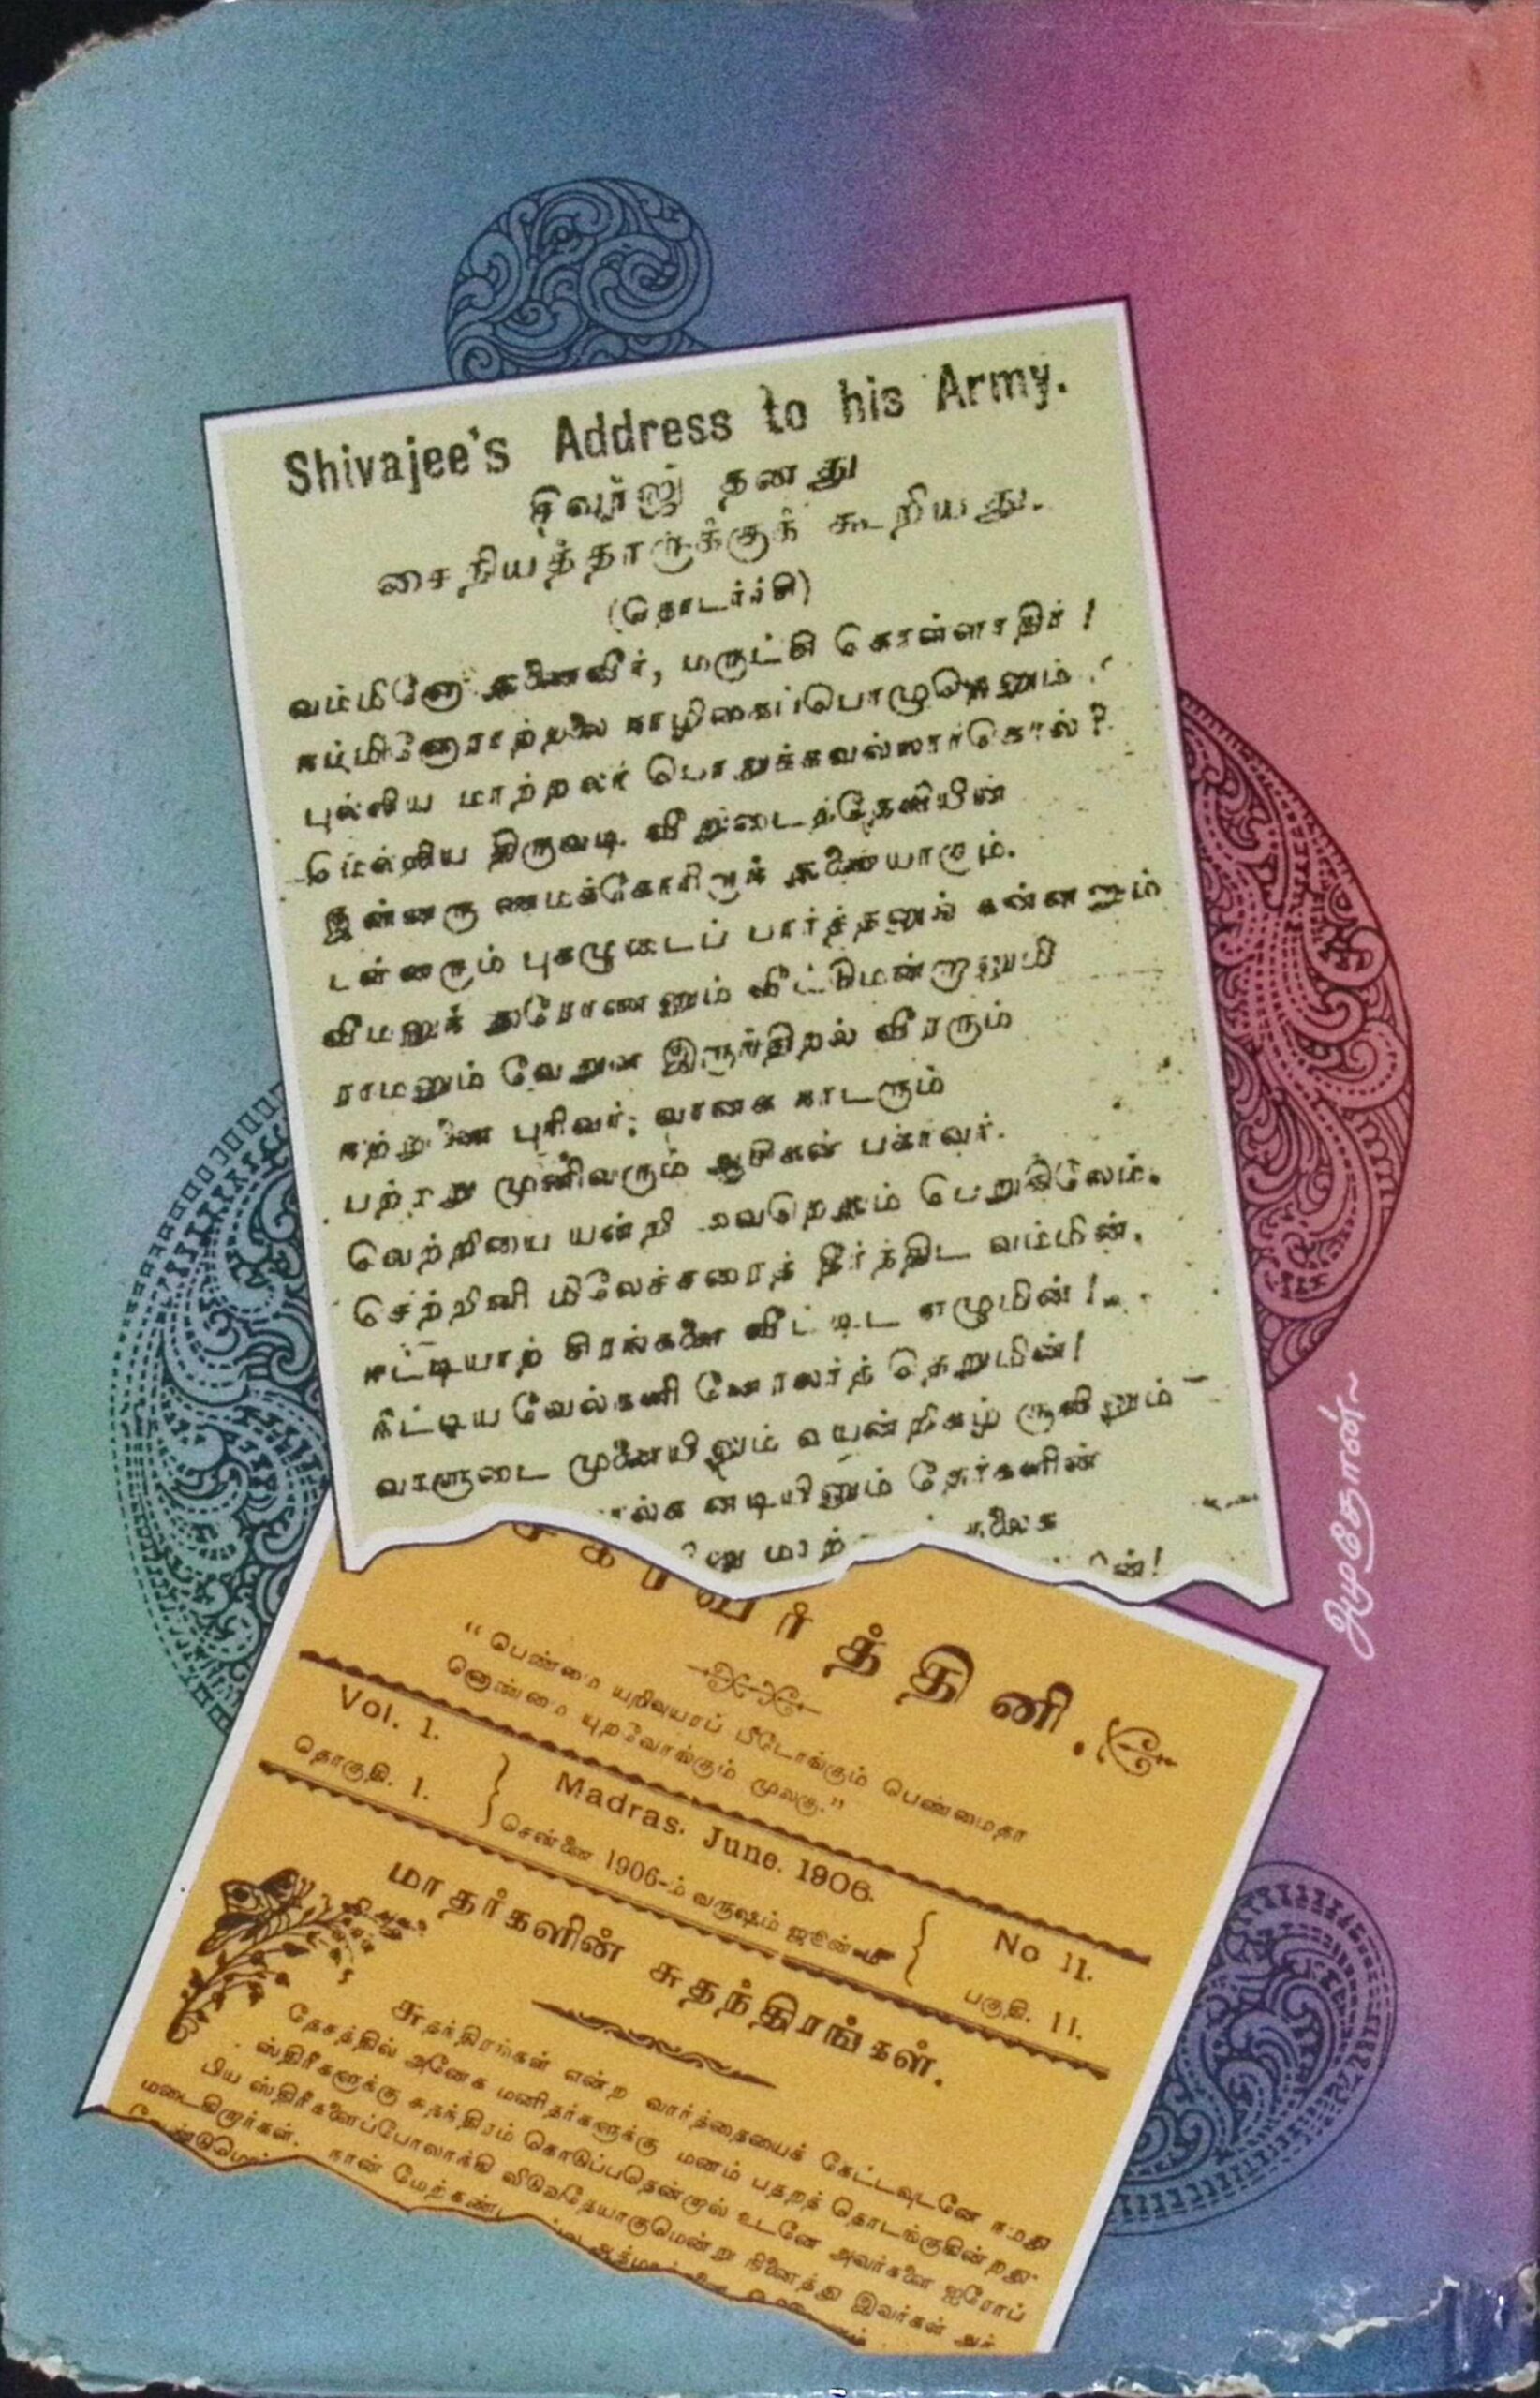 Shivajee's Address to his Army.
சிவாஜி தனது
சைநியத்தாருக்குக் கூறியது.
(தொடர்ச்சி)
வம்மினோ துணைவீர், மருட்சி கொள்ளாதிர் !
நம்மினோராற்றலை நாழிகைப்பொழுதெனும்
புல்லிய மாற்றலர் பொறுக்கவல்லார்கொல்?
மெல்லிய திருவடி வீறுடைத்தேவியின்
இன்னரு ணமக்கோரிருந் துணையாகும்.
பன்னரும் புகழுடைப் பார்த்தனுங் கண்ணனும்
வீமனுந் துரோணனும் வீட்டுமன்றானும்
ராமனும் வேறுள இருந்திறல் வீரரும்
நற்றுணை புரிவர்; வானக நாடரும்
பற்றறு முனிவரும் ஆசிகள் பகர்வர்.
வெற்றியை யன்றி வேறெதும் பெறுகிலேம்.
செற்றினி மிலேச்சரைத் தீர்த்திட வம்மின்.
ஈட்டியாற் சிரங்களை வீட்டிட எழுமின் !
நீட்டிய வேல்களி னேரலர்த் தெறுமின்!
வாளுடை முனையினும் வயன்றிகழ் சூலினும்
னடியினும் தேர்களின்
மாற்
வர்த்தினி.
“பெண்மை யறிவுயரப் பீடோங்கும் பெண்மைதா
னொண்மை யுறவோங்கும் முலகு.”
Vol. 1. Madras. June. 1906. No 11.
தொகுதி. 1. சென்னை 1906-ம் வருஷம் ஜூன்-மீ பகுதி. 11.
மாதர்களின் சுதந்திரங்கள்.
சுதந்திரங்கள் என்ற வார்த்தையைக் கேட்டவுடனே நமது
தேசத்தில் அனேக மனிதர்களுக்கு மனம் பதறத் தொடங்குகின்றது.
ஸ்திரீகளுக்கு சுதந்திரம் கொடுப்பதென்றால் உடனே அவர்களை ஐரோப்
பிய ஸ்திரீகளைப்போலாக்கி விடுவதேயாகுமென்று நினைத்து இவர்கள் அச்
மடைகிறார்கள். நான் மேற்கண்ட
அழகோன்